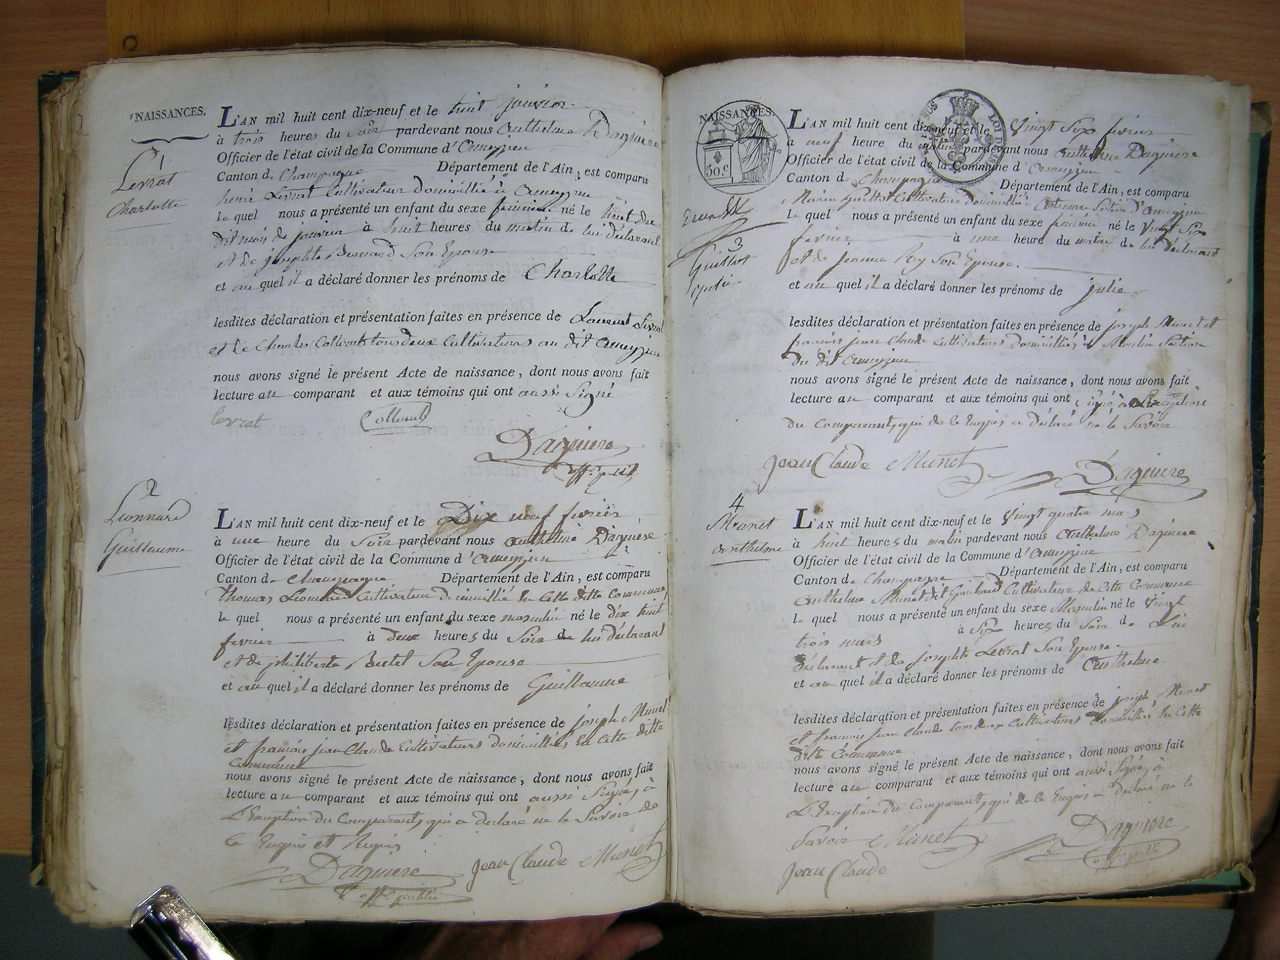 NAISSANCES.
1
Levrat
Charlotte
L'AN mil huit cent dix-neuf et le huit janvier
à trois heures du soir pardevant nous Anthelme Daguiere
Officier de l'état civil de la Commune d'Ameyzieu
Canton de Champagne Département de l'Ain, est comparu
Levrat Cultivateur domicillié à Ameyzieu
le quel nous a présenté un enfant du sexe feminin né le huit du
dit mois de janvier à huit heures du matin de lui déclarant
et de josephte Bernard Son Epouse
et au quel il a déclaré donner les prénoms de Charlotte
lesdites déclaration et présentation faites en présence de Laurent Levrat
et de Charles Collomb tous deux Cultivateurs au dit Ameyzieu
nous avons signé le présent Acte de naissance, dont nous avons fait
lecture au comparant et aux témoins qui ont aussi Signé
levrat Collomb
Daguiere
2
Lionnard
Guillaume
L'AN mil huit cent dix-neuf et le Dix neuf fevrier
à une heure du Soir pardevant nous Anthelme Daguiere
Officier de l'état civil de la Commune d'Ameyzieu
Canton de Champagne Département de l'Ain, est comparu
Thomas Lionnard Cultivateur domicillié en Cette ditte Commune
le quel nous a présenté un enfant du sexe masculin né le dix huit
fevrier à deux heures du Soir de lui déclarant
et de philiberte Butel Son Epouse
et au quel il a déclaré donner les prénoms de Guillaume
lesdites déclaration et présentation faites en présence de joseph Munet
et francois jean Claude Cultivateurs domicilliés en Cette ditte
Commune
nous avons signé le présent Acte de naissance, dont nous avons fait
lecture au comparant et aux témoins qui ont aussi Signé, à
L'Exception du Comparant, qui a déclaré ne le Savoir de
ce Enquis et Requis
Daguiere Jean Claude Munet
off. public
NAISSANCES.
30 c
3
Guillot
julie
L'AN mil huit cent dix-neuf et le Vingt Six fevrier
à neuf heure du matin pardevant nous Anthelme Daguiere
Officier de l'état civil de la Commune d'Ameyzieu
Canton de Champagne Département de l'Ain, est comparu
Guillot Cultivateur domicillié Section d'Ameyzieu
le quel nous a présenté un enfant du sexe feminin né le Vingt Six
fevrier à une heure du matin de lui déclarant
et de jeanne Rey Son Epouse
et au quel il a déclaré donner les prénoms de julie
lesdites déclaration et présentation faites en présence de joseph Munet et
francois jean Claude Cultivateurs domicilliés à Section
du dit Ameyzieu
nous avons signé le présent Acte de naissance, dont nous avons fait
lecture au comparant et aux témoins qui ont Signé, à L'exception
du Comparant, qui de ce Enquis a déclaré ne le Savoir
Jean Claude Munet Daguiere
4
Munet
Anthelme
L'AN mil huit cent dix-neuf et le Vingt quatre mars
à huit heures du matin pardevant nous Anthelme Daguiere
Officier de l'état civil de la Commune d'Ameyzieu
Canton de Champagne Département de l'Ain, est comparu
Anthelme Munet Cultivateur de Cette Commune
le quel nous a présenté un enfant du sexe Masculin né le Vingt
trois mars à Six heures du Soir de Lui
déclarant et de josephte Levrat Son Epouse
et au quel il a déclaré donner les prénoms de Anthelme
lesdites déclaration et présentation faites en présence de joseph Munet
et francois jean Claude tous deux Cultivateurs domicilliés en Cette
ditte Commune
nous avons signé le présent Acte de naissance, dont nous avons fait
lecture au comparant et aux témoins qui ont aussi Signé, à
L'Exception du Comparant, qui de ce Enquis a déclaré ne le
Savoir Munet Daguiere
Jean Claude